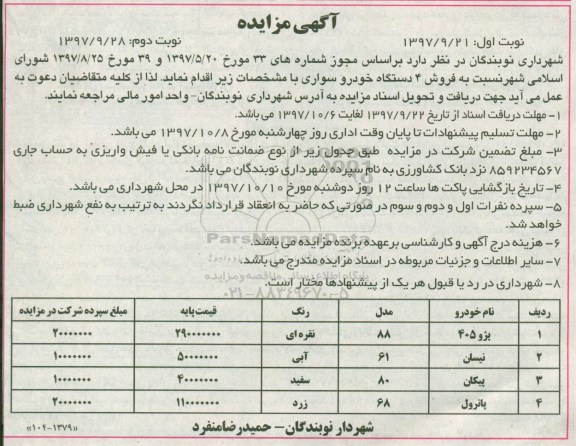 آگهی مزایده
نوبت اول: ۱۳۹۷/۹/۲۱ نوبت دوم: ۱۳۹۷/۹/۲۸
شهرداری نوبندگان در نظر دارد براساس مجوز شماره های ۳۳ مورخ ۱۳۹۷/۵/۲۰ و ۳۹ مورخ ۱۳۹۷/۸/۲۵ شورای
اسلامی شهرنسبت به فروش ۴ دستگاه خودرو سواری با مشخصات زیر اقدام نماید. لذا از کلیه متقاضیان دعوت به
عمل می آید جهت دریافت و تحویل اسناد مزایده به آدرس شهرداری نوبندگان-واحد امور مالی مراجعه نمایند.
۱- مهلت دریافت اسناد از تاریخ ۱۳۹۷/۹/۲۲ لغایت ۱۳۹۷/۱۰/۶ می باشد.
۲- مهلت تسلیم پیشنهادات تا پایان وقت اداری روز چهارشنبه مورخ ۱۳۹۷/۱۰/۸ می باشد.
۳- مبلغ تضمین شرکت در مزایده طبق جدول زیر از نوع ضمانت نامه بانکی یا فیش واریزی به حساب جاری
۸۵۹۲۳۴۵۶۷ نزد بانک کشاورزی به نام سپرده شهرداری نوبندگان می باشد.
۴- تاریخ بازگشایی پاکت ها ساعت ۱۲ روز دوشنبه مورخ ۱۳۹۷/۱۰/۱۰ در محل شهرداری می باشد.
۵- سپرده نفرات اول و دوم و سوم در صورتی که حاضر به انعقاد قرارداد نگردند به ترتیب به نفع شهرداری ضبط
خواهد شد.
۶- هزینه درج آگهی و کارشناسی برعهده برنده مزایده می باشد.
۷- سایر اطلاعات و جزئیات مربوطه در اسناد مزایده مندرج می باشد.
۸- شهرداری در رد یا قبول هر یک از پیشنهادها مختار است.
ParsNamadData
پایگاه اطلاع رسانی مناقصه و مزایده
۰۲۱-۸۸۳۴۹۶۷۰-۵
ردیف نام خودرو مدل رنگ قیمت پایه مبلغ سپرده شرکت در مزایده
۱ پژو ۴۰۵ ۸۸ نقره ای ۲۹۰۰۰۰۰۰۰ ۲۰۰۰۰۰۰۰
۲ نیسان ۶۱ آبی ۵۰۰۰۰۰۰۰ ۱۰۰۰۰۰۰۰
۳ پیکان ۸۰ سفید ۴۰۰۰۰۰۰۰ ۱۰۰۰۰۰۰۰
۴ پاترول ۶۸ زرد ۱۱۰۰۰۰۰۰۰ ۲۰۰۰۰۰۰۰
شهردار نوبندگان- حمیدرضا منفرد
«۱۰۹-۱۳۷۹»